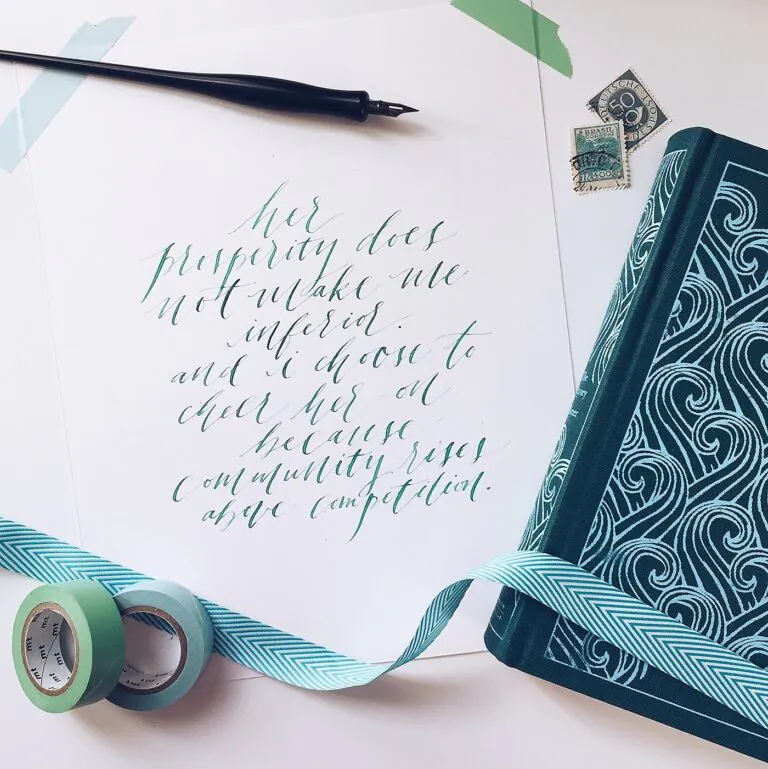 her
prosperity does
not make me
inferior.
and i choose to
cheer her on
because
community rises
above competition.
BRASIL
CORREIO
50
mt
mt
mt